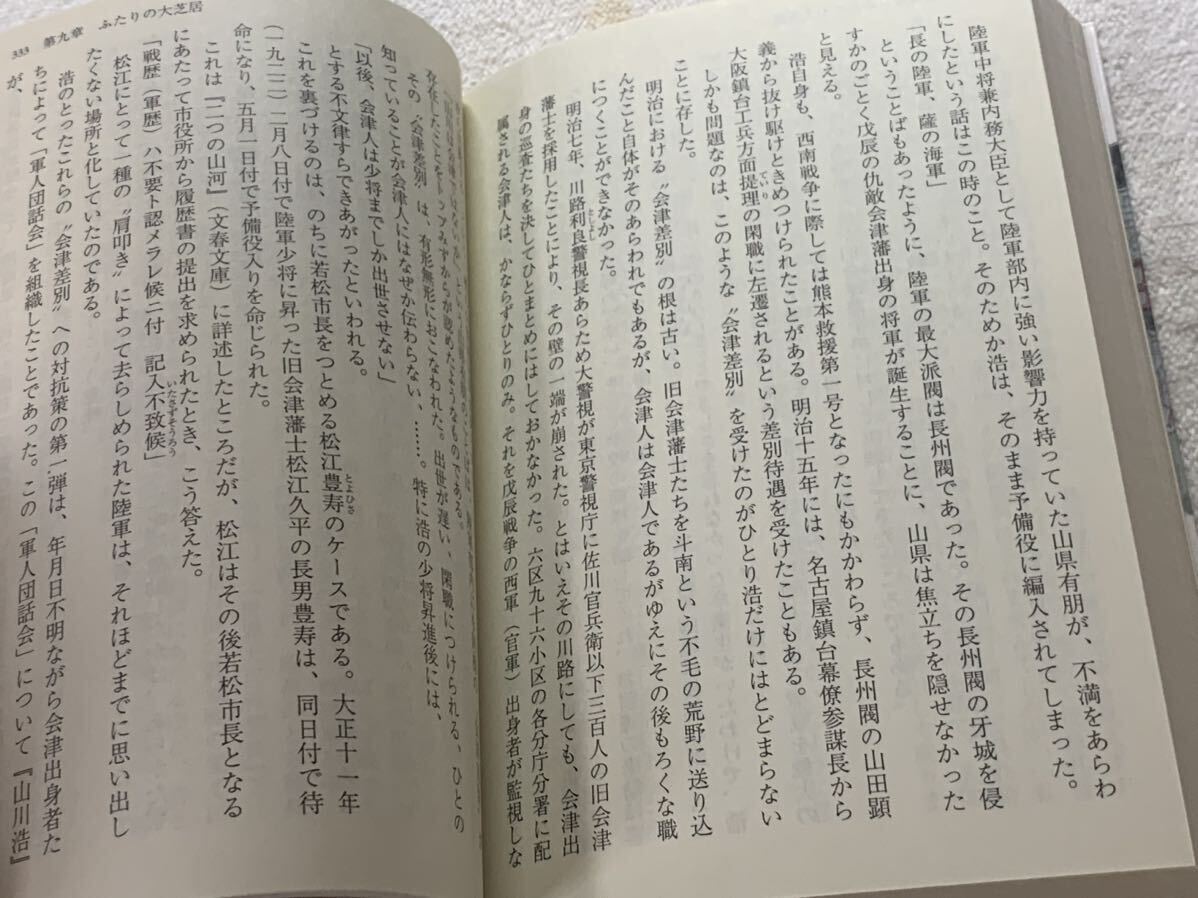 陸軍中将兼内務大臣として陸軍部内に強い影響力を持っていた山県有朋が、不満をあらわ
にしたという話はこの時のこと。そのためか浩は、そのまま予備役に編入されてしまった。
「長の陸軍、薩の海軍」
ということばもあったように、陸軍の最大派閥は長州閥であった。その長州閥の牙城を侵
すかのごとく戊辰の仇敵会津藩出身の将軍が誕生することに、山県は焦立ちを隠せなかった
と見える。
浩自身も、西南戦争に際しては熊本救援第一号となったにもかかわらず、長州閥の山田顕
義から抜け駆けときめつけられたことがある。明治十五年には、名古屋鎮台幕僚参謀長から
大阪鎮台工兵方面提理の閑職に左遷されるという差別待遇を受けたこともある。
ていり
しかも問題なのは、このような〝会津差別〟を受けたのがひとり浩だけにはとどまらない
ことに存した。
明治における〝会津差別〟の根は古い。旧会津藩士たちを斗南という不毛の荒野に送り込
んだこと自体がそのあらわれでもあるが、会津人は会津人であるがゆえにその後もろくな職
につくことができなかった。
明治七年、川路利良警視長あらため大警視が東京警視庁に佐川官兵衛以下三百人の旧会津
としよし
藩士を採用したことにより、その壁の一端が崩された。とはいえその川路にしても、会津出
身の巡査たちを決してひとまとめにはしておかなかった。六区九十六小区の各分庁分署に配
属される会津人は、かならずひとりのみ。それを戊辰戦争の西軍（官軍）出身者が監視しな
存在したことをトップみずからが認めたようなものである。
その〝会津差別〟は、有形無形におこなわれた。出世が遅い、閑職につけられる、ひとの
知っていることが会津人にはなぜか伝わらない、……。特に浩の少将昇進後には、
「以後、会津人は少将までしか出世させない」
とする不文律すらできあがったといわれる。
これを裏づけるのは、のちに若松市長をつとめる松江豊寿のケースである。大正十一年
とよひさ
（一九二二）二月八日付で陸軍少将に昇った旧会津藩士松江久平の長男豊寿は、同日付で待
命になり、五月一日付で予備役入りを命じられた。
これは『二つの山河』（文春文庫）に詳述したところだが、松江はその後若松市長となる
にあたって市役所から履歴書の提出を求められたとき、こう答えた。
「戦歴（軍歴）ハ不要ト認メラレ候ニ付　記入不致候」
いたさずそうろう
松江にとって一種の〝肩叩き〟によって去らしめられた陸軍は、それほどまでに思い出し
たくない場所と化していたのである。
浩のとったこれらの〝会津差別〟への対抗策の第一弾は、年月日不明ながら会津出身者た
ちによって「軍人団話会」を組織したことであった。この「軍人団話会」について『山川浩』
が、
333　第九章　ふたりの大芝居